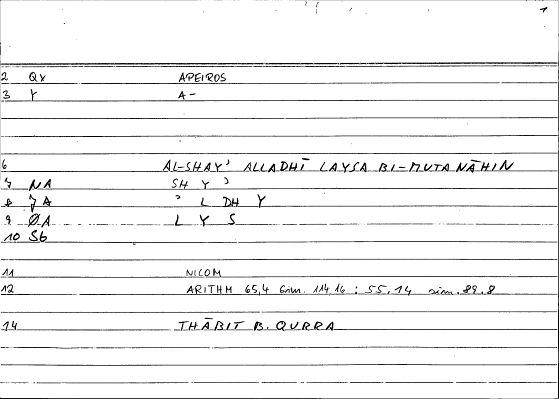 1
2 Qx APEIROS
3 Y A-
6 AL-SHAYʾ ALLADHĪ LAYSA BI-MUTANĀHIN
7 NA SH Y ʾ
8 JA ʾ L DH Y
9 ØA L Y S
10 Sb
11 NICOM
12 ARITHM 65,4 sim. 114,16 : 55.14 sim. 89.8
14 THĀBIT B. QURRA